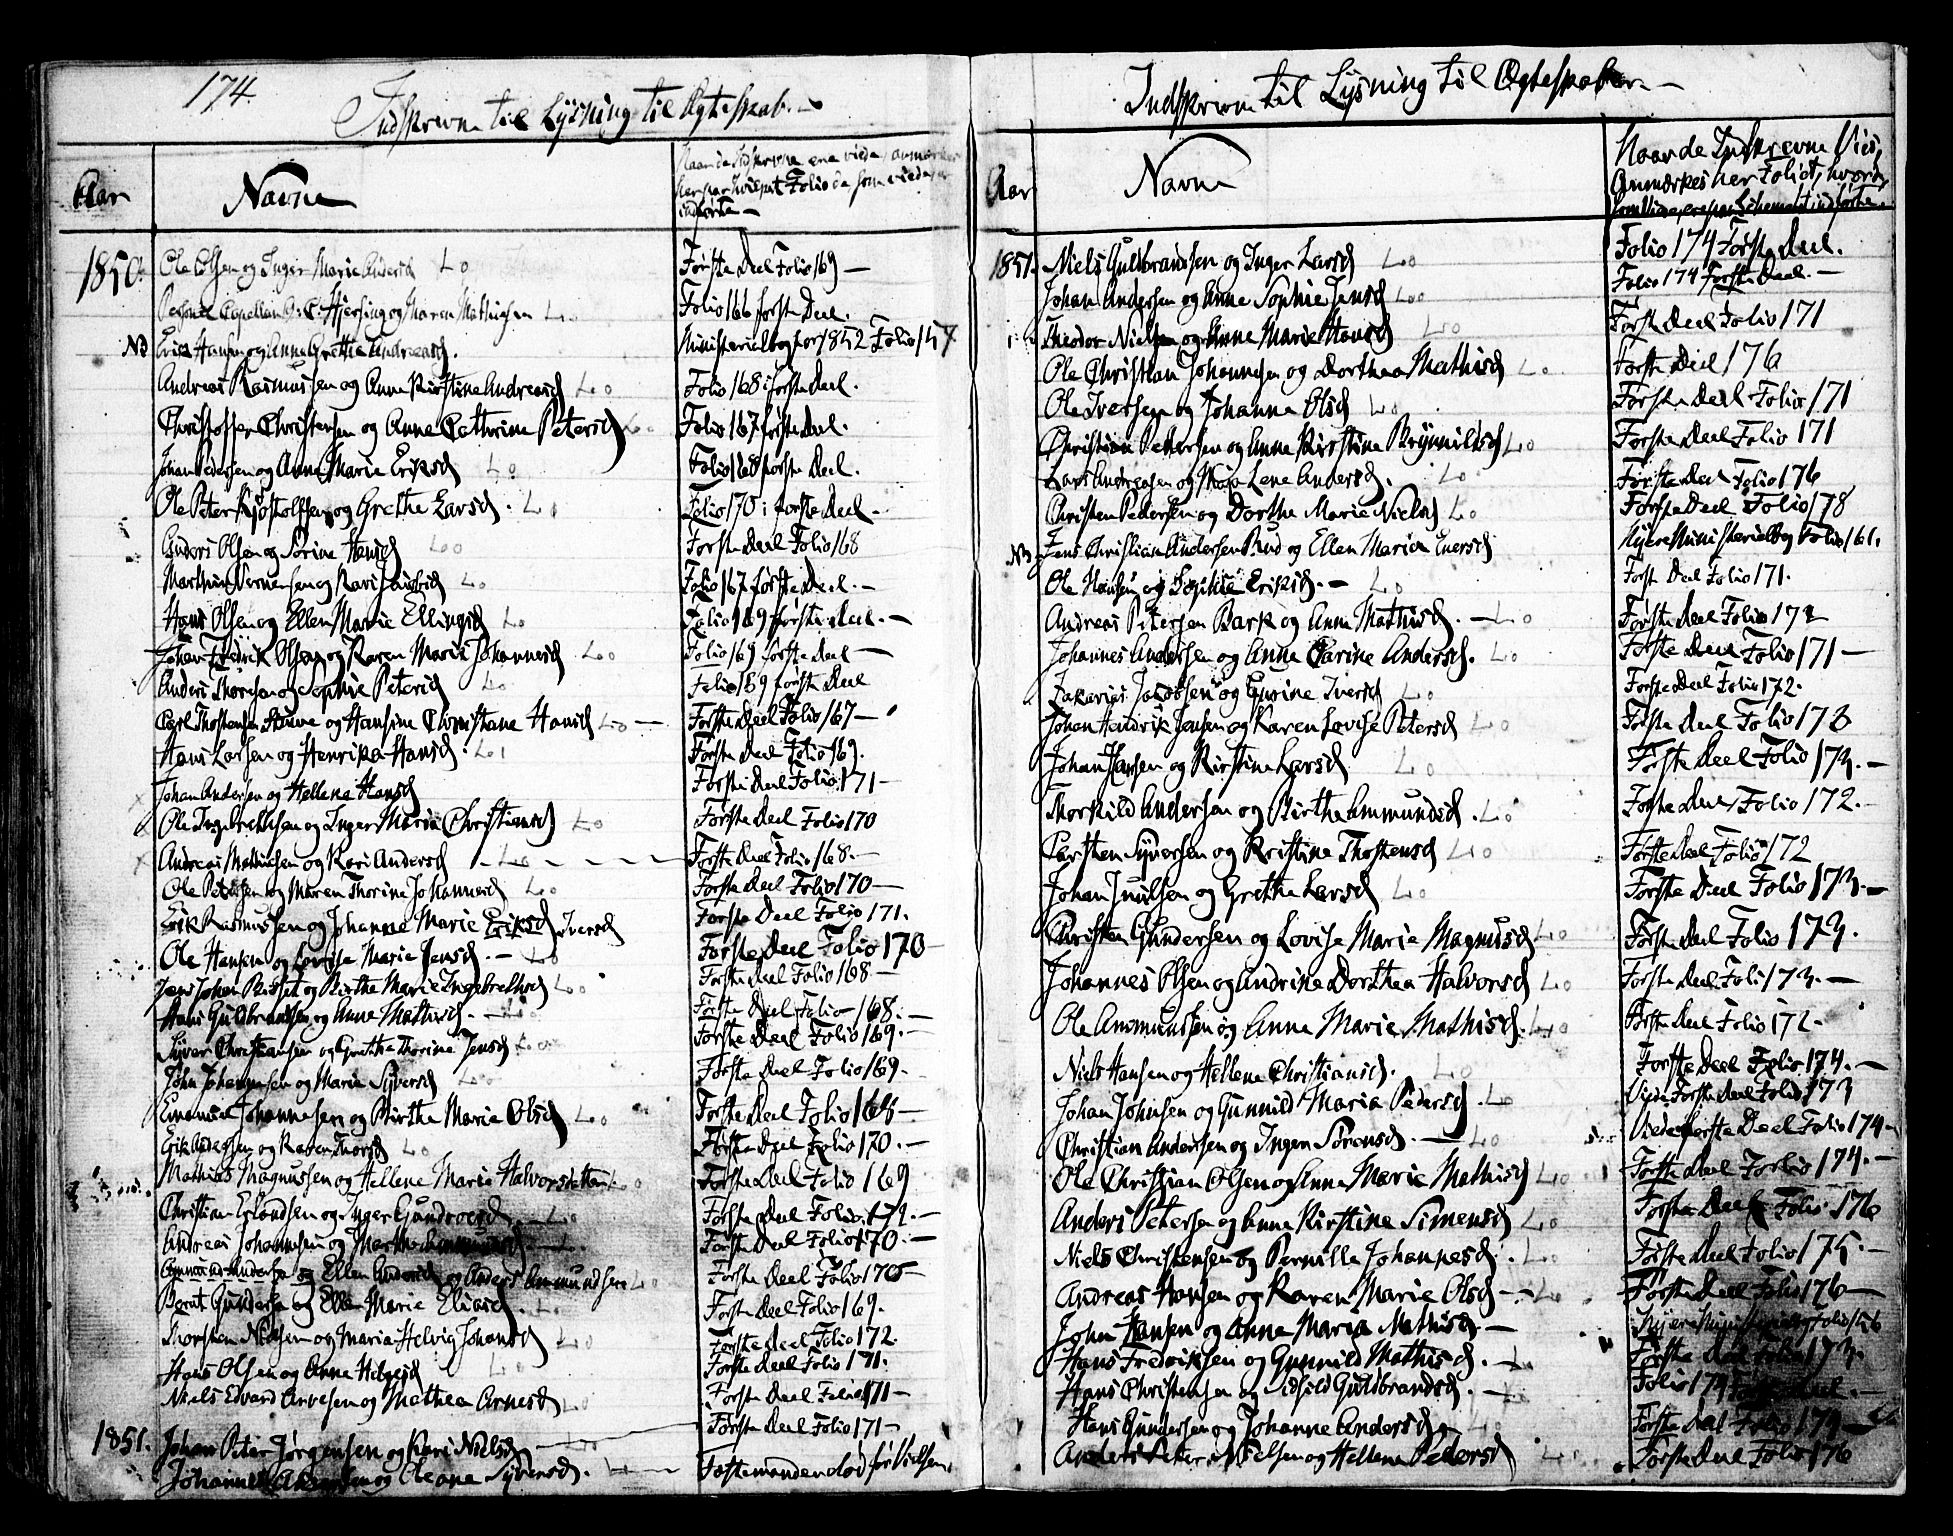 174.
Indskrevne til Lysning til Ægteskab.
Aar
Navne
Naar de Indskrevne ere viede, anmærkes
her paa hvilket Folio de som viede er
indførte
1850. Ole Olsen og Inger Marie Andersd Lo Første Deel Folio 169
Personel Capellan Hjersing og Maren Mathisen Lo Folio 166 første Deel.
NB Erick Hansen og Anne Grethe Andreasd. Ministerielbog for 1852 Folio 157
Andreas Rasmussen og Anne Kirstine Andreasd Lo Folio 168 i første Deel.
Christoffer Christensen og Anne Cathrine Petersd Lo Folio 167 første Deel.
Johan Pedersen og Anne Marie Eriksd Lo Folio 168 første Deel.
Ole Peter Kjøstolfsen og Grethe Larsd. Lo Folio 170 i første Deel
Anders Olsen og Sørine Hansd Loo Første Deel Folio 168
og Kari Lo Folio 167 første Deel.
Hans Olsen og Ellen Marie Ellingsd Lo Folio 169 første Deel.
Johan Fredrik Olsen og Karen Marie Johannesd Lo Folio 169 første Deel
Anders Thoresen og Sophie Petersd Lo Folio 169 første Deel
Carl Thostensen Stuwe og Hansine Christiane Hansd Lo Første Deel Folio 167
Hans Larsen og Henrika Hansd Lo Første Deel Folio 169.
Johan Andersen og Hellene Hansd Første Deel Folio 171
Ole Ingebrethsen og Inger Maria Christiansd Lo Første Deel Folio 170
Andreas Mathisen og Kari Andersd Lo Første Deel Folio 168.
Ole Petersen og Maren Thorine Johannesd Lo Første Deel Folio 170
Erik Rasmussen og Johanne Marie Eriksd Iversd Første Deel Folio 171.
Ole Hansen og Lovise Marie Jensd. Lo Første Deel Folio 170
Jens Johan og Birthe Marie Ingebrethsd Lo Første Deel Folio 168
Hans Guldbrandsen og Anne Mathisd. Lo Første Deel Folio 168.
Syver Christiansen og Grethe Thorine Jensd Lo Første Deel Folio 169.
John Johannesen og Marie Syversd Lo Første Deel Folio 169.
Emanuel Johannesen og Birthe Marie Olsd Lo Første Deel Folio 168
Erik Andersen og Karen Thorsd Lo Første Deel Folio 170.
Mathias Magnussen og Hellene Marie Halvorsdatter Lo Første Deel Folio 169
Christian Erlandsen og Inger Gundersd Lo Første Deel Folio 172.
Andreas Johannesen og Marthe Første Deel Folio 170.
og Ellen Andersd og Anders Ammundsen Lo Første Deel Folio 170
Bernt Gundersen og Ellen Marie Eliasd. Lo Første Deel Folio 169.
Thorsten Nielsen og Maria Helvig Johansd Lo Første Deel Folio 172.
Hans Olsen og Anne Helgesd Lo Første Deel Folio 171.
Niels Edvard Arvesen og Mathea Arnesd Lo Første Deel Folio 171
1851. Johan Peter Jørgensen og Kari Nielsd Lo Første Deel Folio 171
Johannes og Oleane Syversd. Fæstemanden død før Vielsen.
Indskrevne til Lysning til Ægteskaber
Aar
Navne
Naar de Indskrevne Vies,
anmærkes her Foliet, hvor de
som Viede ere paa Schematet indførte.
1851. Niels Guldbrandsen og Inger Larsd Lo Folio 174 Første Deel.
Johan Andersen og Anne Sophie Jensd Lo Folio 174 Første Deel.
Theodor Nielsen og Anne Marie Hansd Lo Første Deel Folio 171
Ole Christian Johannesen og Dorthea Mathisd Lo Første Deel 176
Ole Iversen og Johanne Olsd Lo Første Deel Folio 171
Christian Pettersen og Anne Kirstine Brynnildsd Lo Første Deel Folio 171
Lars Andreasen og Maja Lene Andersd. Lo Første Deel Folio 176
Christen Pedersen og Dorthe Marie Nielsd Lo Første Deel Folio 178
NB Jens Christian Andersen Rud og Ellen Maria Eversd Nyere Ministerielbog Folio 161.
Ole Hansen og Sophie Eriksd. Lo Første Deel Folio 171.
Andreas Petersen Bark og Anne Mathisd. Lo Første Deel Folio 172
Johannes Andersen og Anne Carine Andersd. Lo Første Deel Folio 171
Zakarias Jacobsen og Gurine Iversd Lo Første Deel Folio 172.
Johan Hendrik Jensen og Karen Lovise Petersd Lo Første Deel Folio 173
Johan Hansen og Kirstine Larsd Lo Første Deel Folio 173.
Thorkild Andersen og Birthe Ammundsd. Lo Første Deel Folio 172.
Carsten Syversen og Kristine Thostensd Lo Første Deel Folio 172
Johan Juulsen og Grethe Larsd Lo Første Deel Folio 173.
Christen Gundersen og Lovise Marie Magnusd Lo Første Deel Folio 173.
Johannes Olsen og Andrine Dorthea Halvorsd Lo Første Deel Foli 173.
Ole Ammundsen og Anne Marie Mathisd. Lo Første Deel Folio 172
Niels Hansen og Hellene Christiansd. Lo Første Deel Folio 174.
Johan Johnsen og Gunnild Maria Pedersd. Lo Viede Første Deel Folio 173
Christian Andersen og Inger Sørensd. Lo Viede første Deel Folio 174
Ole Christian Olsen og Anne Marie Mathisd Lo Første Deel Folio 174.
Anders Petersen og Anne Kirstine Simensd Lo Første Deel Folio 176
Niels Christensen og Pernille Johannesd. Lo Første Deel Folio 175.
Andreas Hansen og Karen Marie Olsd Lo Første Deel Folio 176
John Hansen og Anne Maria Mathisd. Nyere Ministerielbog Folio 156
Hans Fredriksen og Gunnild Mathisd. Lo Første Deel Folio 173.
Hans Christensen og Guldbrandsd. Lo Folio 174 Første Deel.
Hans Gundersen og Johanne Andersd Lo Første Deel Folio 174
Anders Peter Nielsen og Hellene Pedersd Lo Første Deel Folio 176